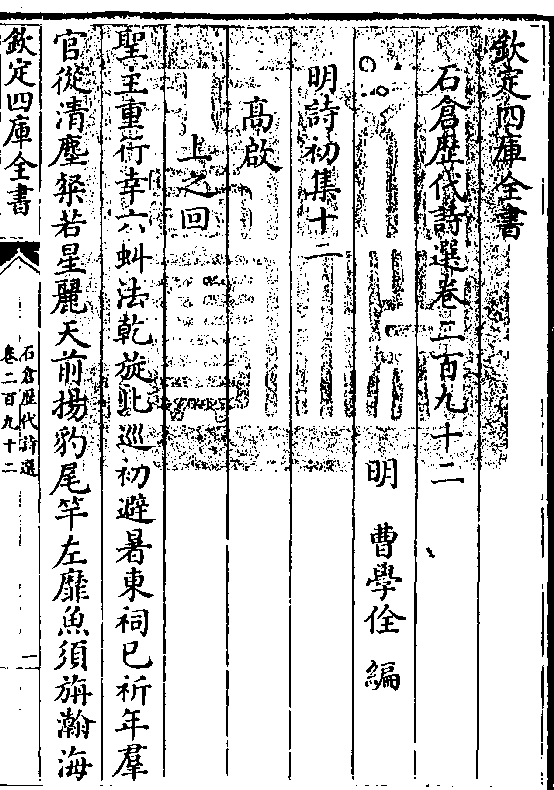 欽定四庫全書
石倉歷代詩選卷二百九十二
明 曹學佺 編
明詩初集十二
高啟
上之回
聖主重行幸六虯法乾旋北巡初避暑東祠已祈年羣
官從清塵粲若星麗天前揚豹尾竿左靡魚須旃瀚海
欽定四庫全書
石倉歷代詩選
卷二百九十二
一